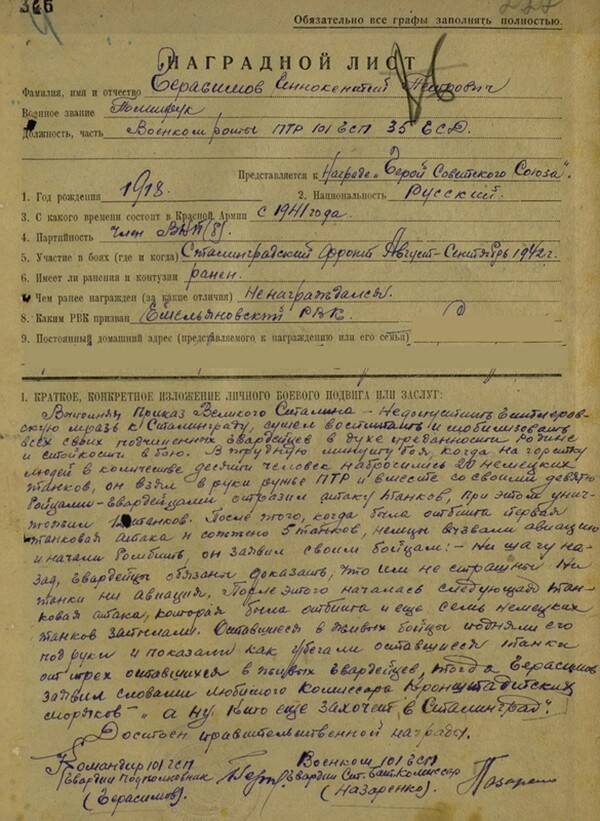 346
Обязательно все графы заполнять полностью.
НАГРАДНОЙ ЛИСТ
Фамилия, имя и отчество Герасимов Иннокентий Петрович
Военное звание Политрук
Должность, часть Военком роты ПТР 101 ГСП 35 ГСД.
Представляется к Награде "Герой Советского Союза".
1. Год рождения 1918. 2. Национальность Русский
3. С какого времени состоит в Красной Армии с 1941 года.
4. Партийность член ВКП(б).
5. Участие в боях (где и когда) Сталинградский Фронт Август-Сентябрь 1942 г.
6. Имеет ли ранения и контузии ранен.
7. Чем ранее награжден (за какие отличия) Ненаграждался.
8. Каким РВК призван Емельяновский РВК.
9. Постоянный домашний адрес (представляемого к награждению или его семьи)
I. КРАТКОЕ, КОНКРЕТНОЕ ИЗЛОЖЕНИЕ ЛИЧНОГО БОЕВОГО ПОДВИГА ИЛИ ЗАСЛУГ:
Выполняя Приказ Великого Сталина - Недопустить Гитлеров-
скую мразь к Сталинграду, сумел воспитать и мобилизовать
всех своих подчиненных Гвардейцев в духе преданности Родине
и стойкости в бою. В трудную минуту боя, когда на горстку
людей в количестве десяти человек набросились 20 немецких
танков, он взял в руки ружье ПТР и вместе со своими девятью
Бойцами-Гвардейцами отразил атаку танков, при этом унич-
тожил танков. После того, когда была отбита первая
танковая атака и сожжено 5 танков, немцы вызвали авиацию
и начали бомбить, он заявил своим бойцам: - Ни шагу на-
зад, Гвардейцы обязаны доказать, что им не страшны ни
танки ни авиация. После этого началась следующая тан-
ковая атака, которая была отбита и еще семь немецких
танков запылали. Оставшиеся в живых бойцы подняли его
под руки и показали как убегали оставшиеся танки
от трех оставшихся в живых Гвардейцев, тогда Герасимов
заявил словами любимого комиссара Кронштадтских
моряков - "а ну кто еще захочет в Сталинград".
Достоен правительственной награды.
Командир 101 ГСП Военком 101 ГСП
Гвардии Подполковник Гвардии Ст. Бат. Комиссар
(Герасимов). (Назаренко)